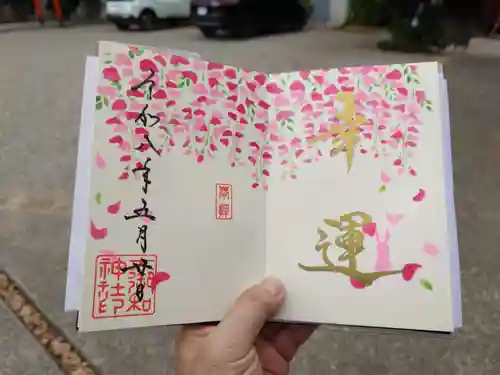 幸運
奉拝
令和八年五月廿日
神社印